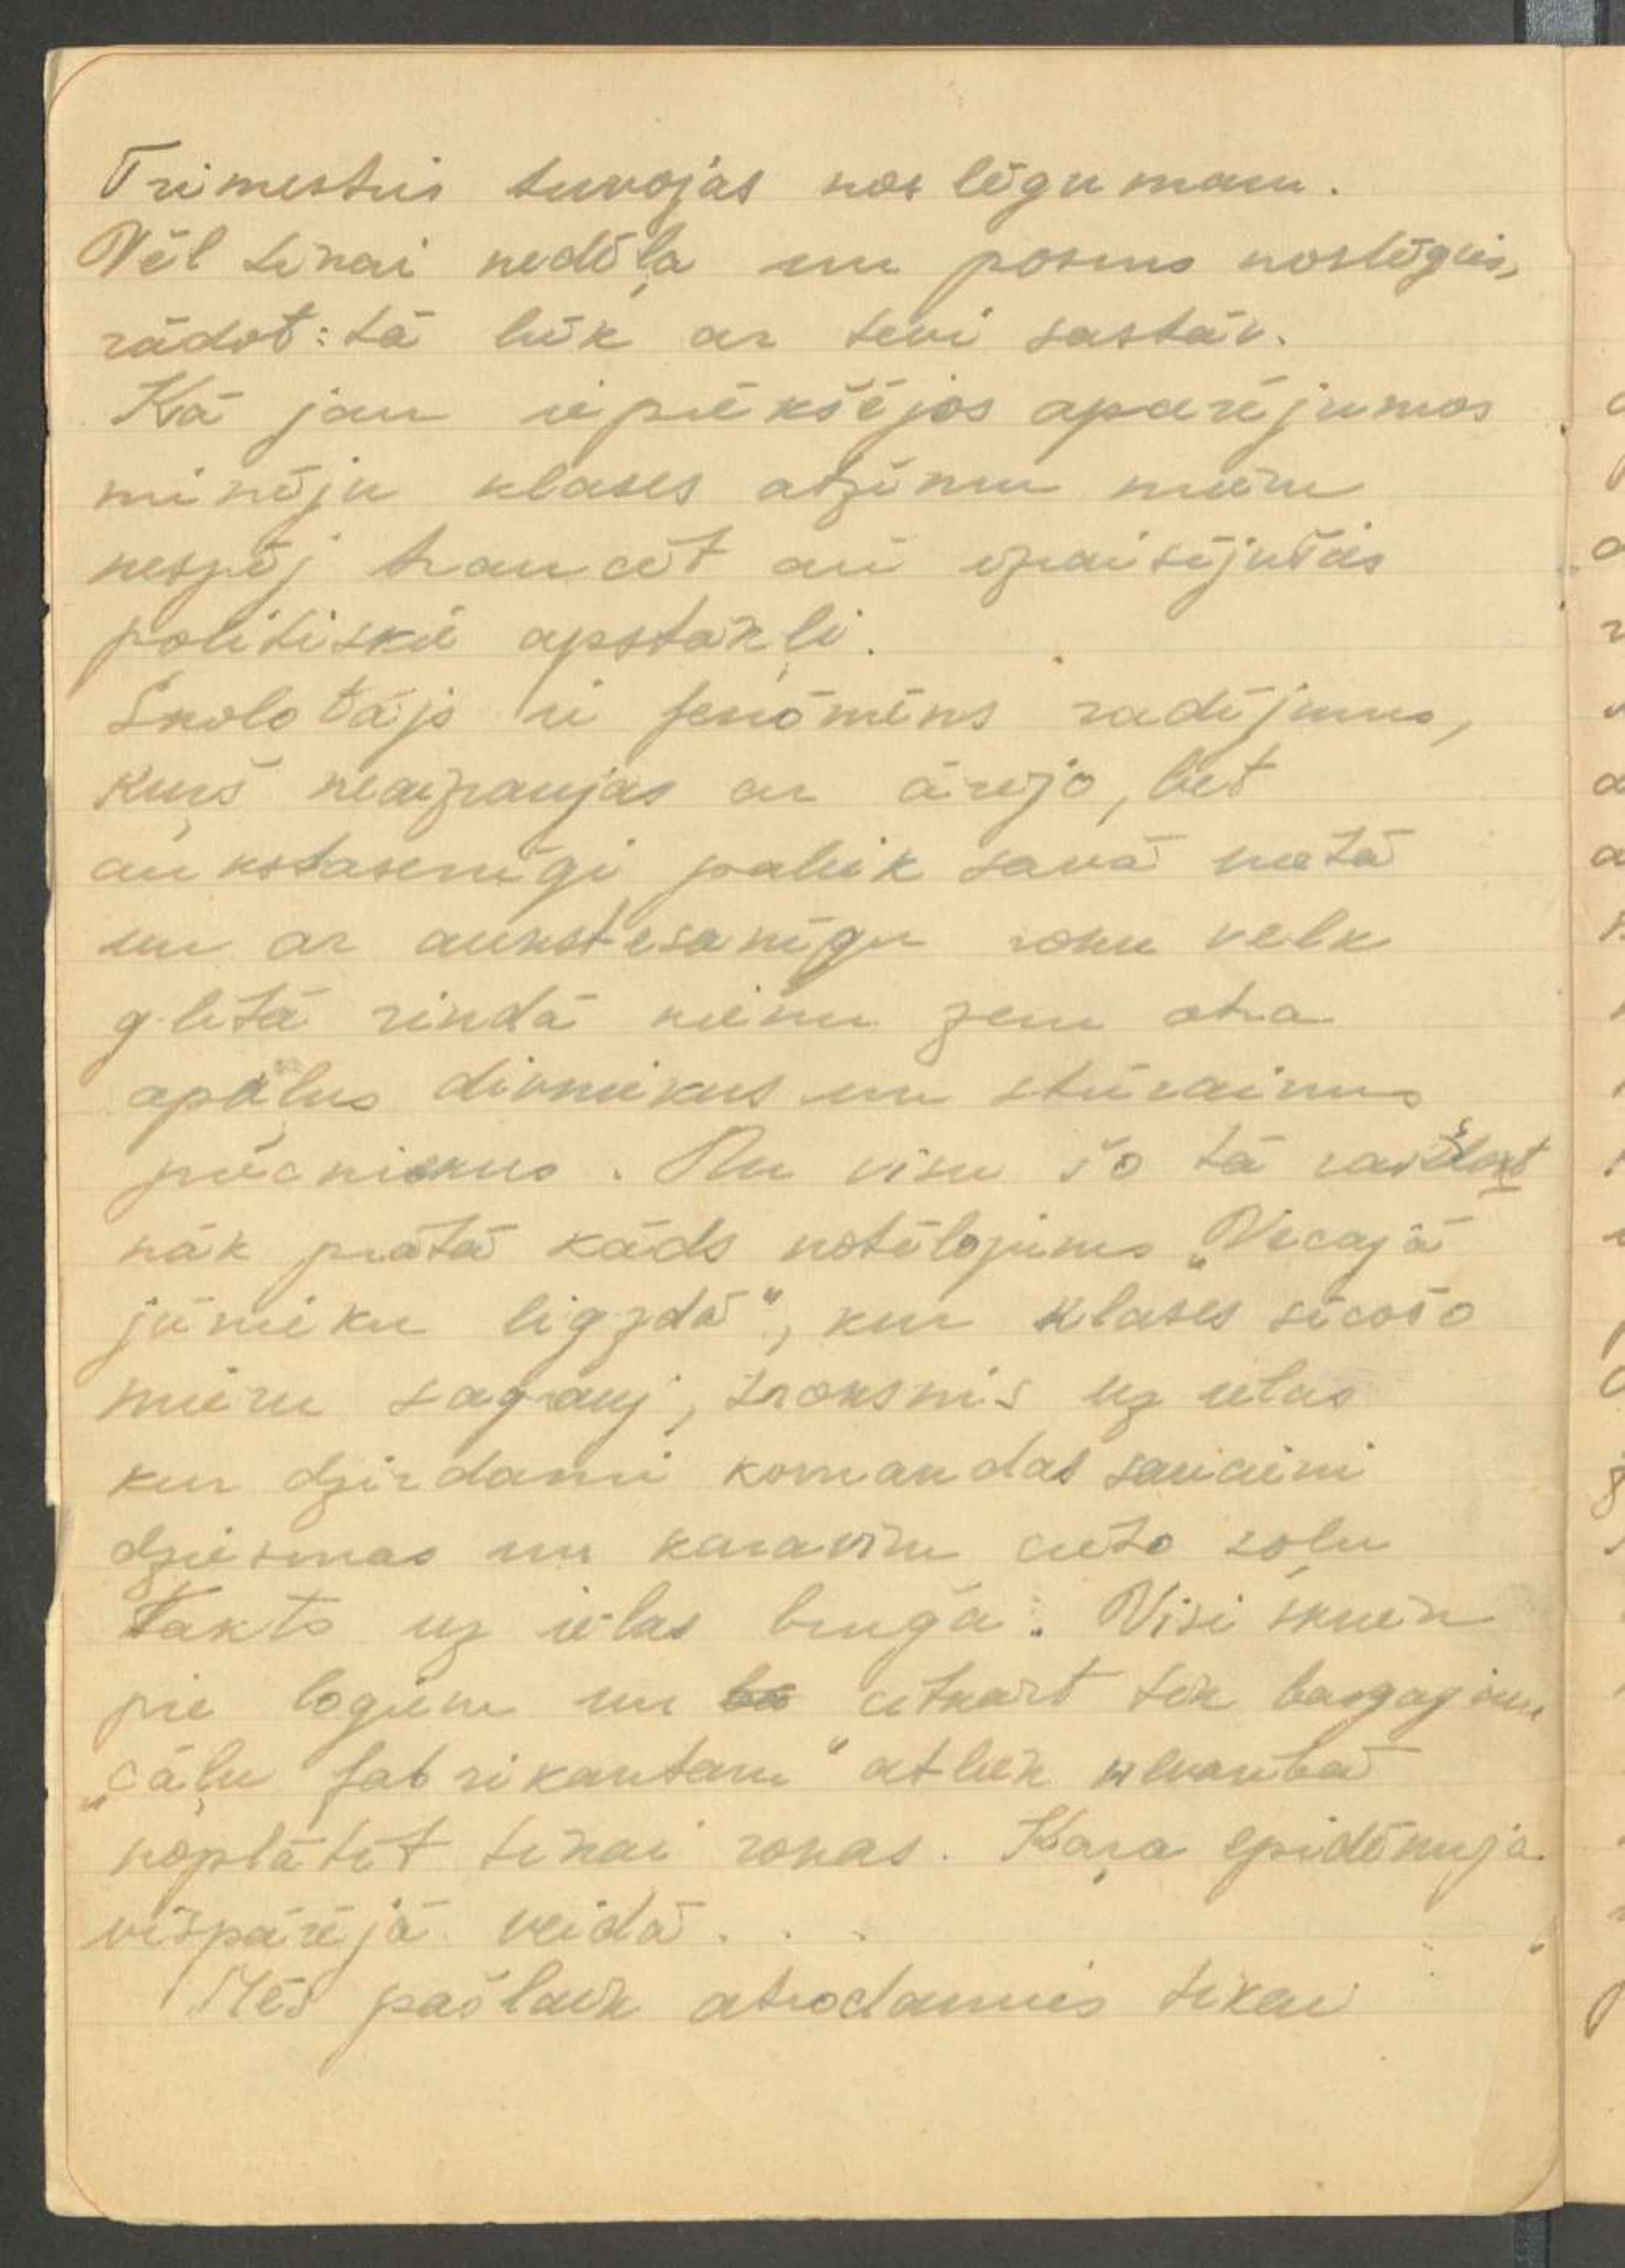 Trimestris tuvojas noslēgumam.
Vēl tikai nedēļa un posms noslēgsies,
rādot: tā lūk ar tevi sastāv.
Kā jau iepriekšējos aparējumos
minēju klases atzīmju mieru
nespēj traucēt arī izraisījušies
politiskie apstākļi.
Skolotājs ir fenōmēns radījums,
kuŗš neaizraujas ar ārējo, bet
aukstasinīgi paliek savā vietā
un ar aukstasanīgu roku velk
glītā rindā vienu zem otra
apaļus divniekus un stūrainus
piecniekus. Nu visu šo tā raksturot
nāk prātā kāds notēlojums „Vecajā
jūrnieku ligzdā", kur klases sēcošo
mieru sagrauj, troksnis uz ielas
kur dzirdami komandas saucieni
dziesmas un karavīru cieto soļu
takts uz ielas bruģa. Visi skrien
pie logiem un citkārt tik bargajam
„cāļu fabrikantam" atliek
noplātīt tikai rokas. Kaŗa epidēmija
vispārējā veidā...
Mēs pašlaik atrodamies tikai